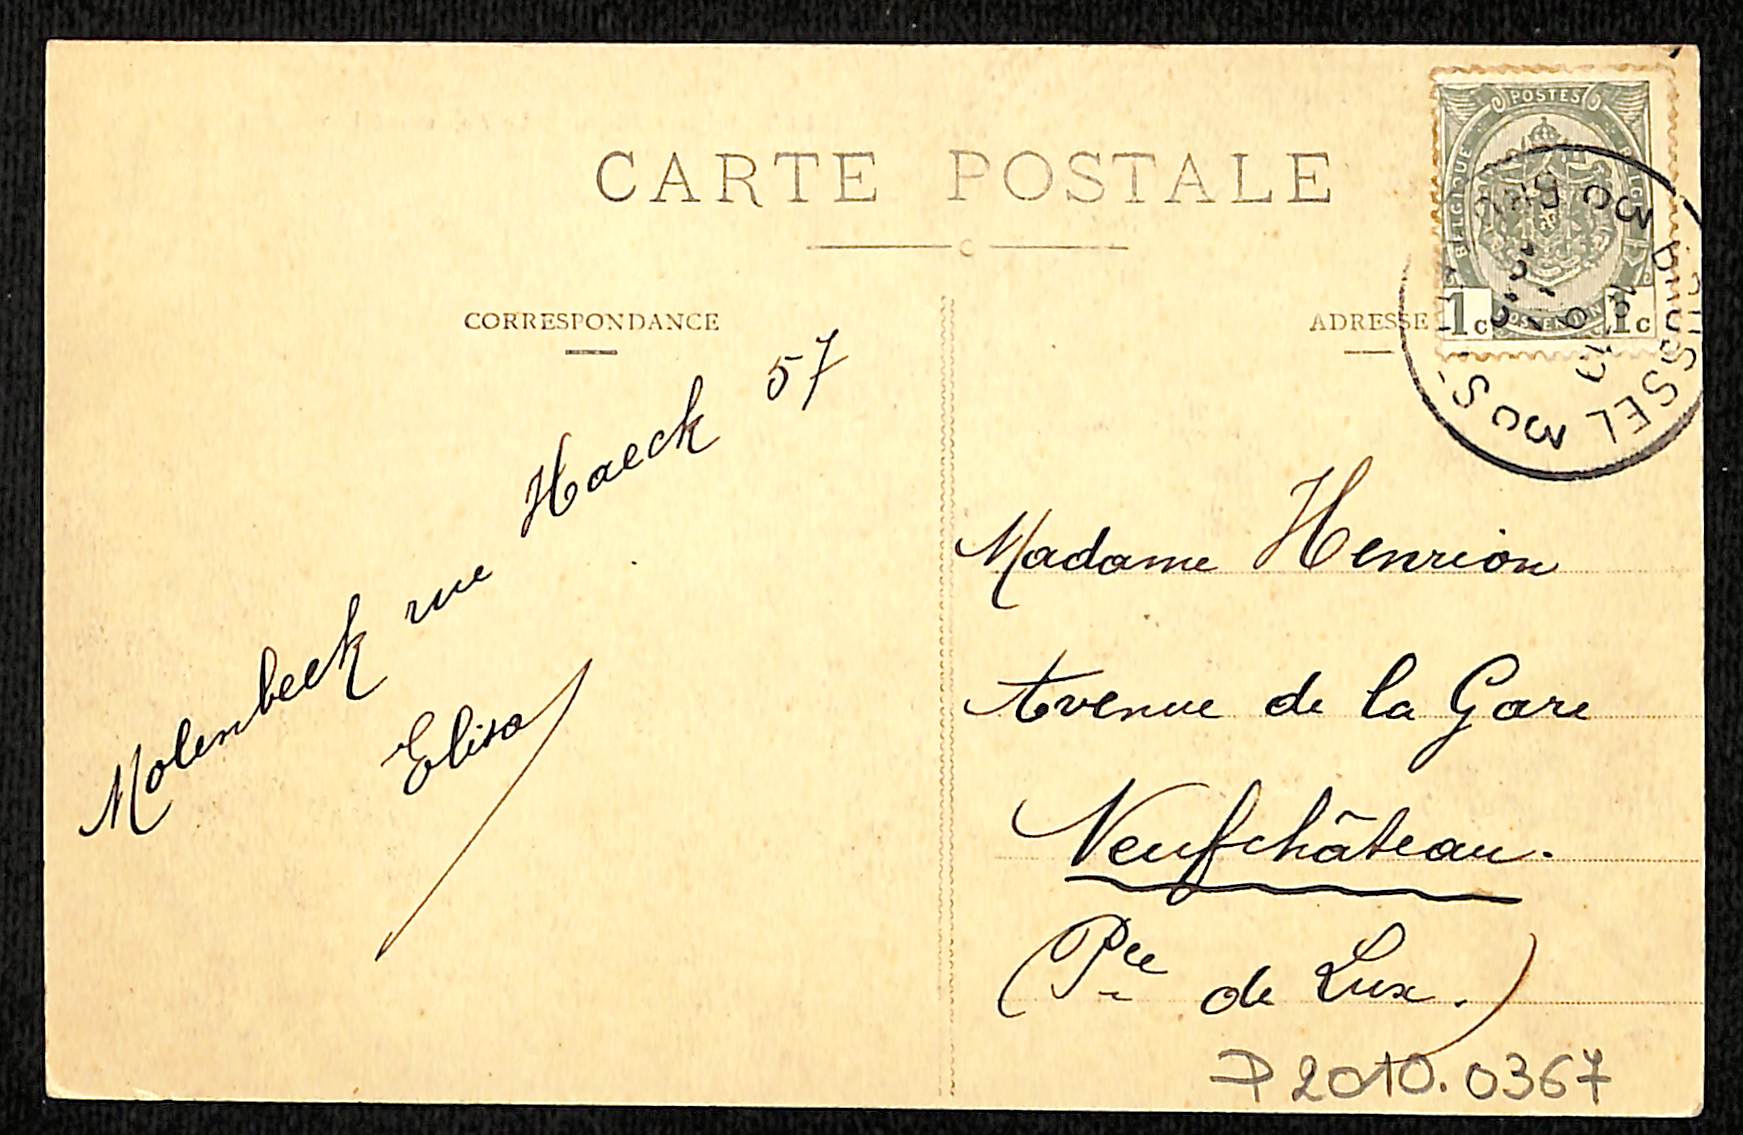 CARTE POSTALE
CORRESPONDANCE
ADRESSE
POSTES
BELGIQUE
1c 1c
Molenbeek rue Haeck 57
Elisa
Madame Henrion
Avenue de la Gare
Neufchâteau.
(Pce de Lux.)
P2010.0367